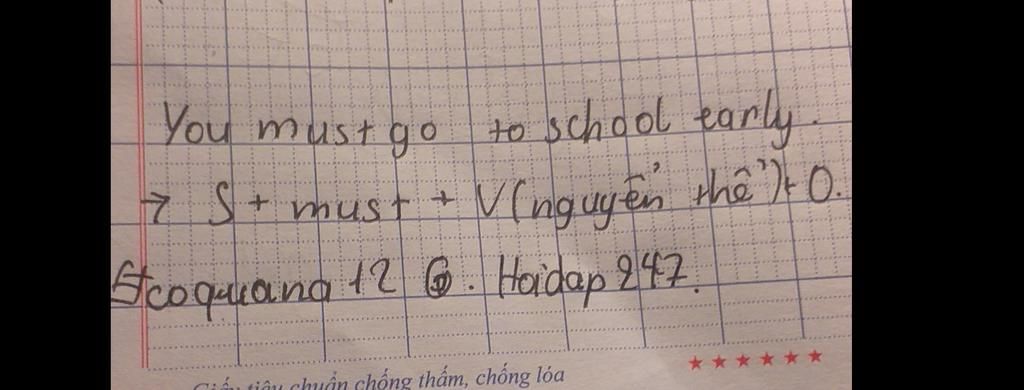 You must go to school early.
→ S + must + V(nguyên thể) + O.
coquang12 @. Hoidap247.
tiêu chuẩn chống thấm, chống lóa